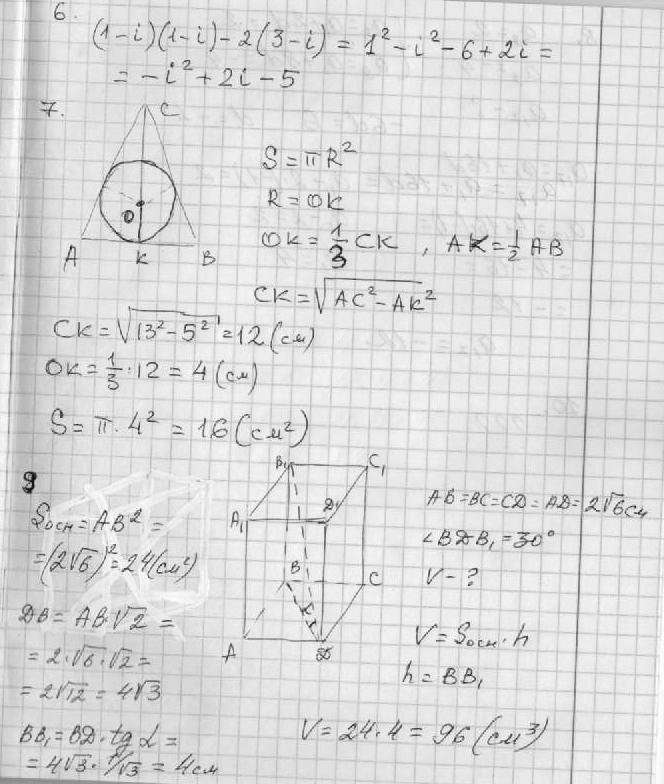 6.
(1-i)(1-i)-2(3-i) = 1²-i²-6+2i =
= -i²+2i-5
7.
C
O
A K B
S = πR²
R = OK
OK = 1/3 CK , AK = 1/2 AB
CK = √(AC²-AK²)
CK = √(13²-5²) = 12 (см)
OK = 1/3 · 12 = 4 (см)
S = π · 4² = 16 (см²)
B₁ C₁
A₁ D₁
B C
A D
Sосн = AB² =
= (2√6)² = 24 (см²)
DB = AB·√2 =
= 2·√6·√2 =
= 2√12 = 4√3
BB₁ = BD · tg α =
= 4√3 · 1/√3 = 4 см
AB = BC = CD = AD = 2√6 см
∠BDB₁ = 30°
V - ?
V = Sосн · h
h = BB₁
V = 24 · 4 = 96 (см³)